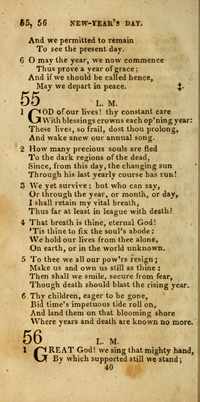 55, 56 NEW-YEAR'S DAY.
And we permitted to remain
To see the present day.
6 O may the year, we now commence
Thus prove a year of grace;
And if we should be called hence,
May we depart in peace. ‡.
55 L. M.
1 GOD of our lives! thy constant care
With blessings crowns each op'ning year:
These lives, so frail, dost thou prolong,
And wake anew our annual song.
2 How many precious souls are fled
To the dark regions of the dead,
Since, from this day, the changing sun
Through his last yearly course has run!
3 We yet survive; but who can say,
Or through the year, or month, or day,
I shall retain my vital breath,
Thus far at least in league with death?
4 That breath is thine, eternal God!
'Tis thine to fix the soul's abode:
We hold our lives from thee alone,
On earth, or in the world unknown.
5 To thee we all our pow'rs resign;
Make us and own us still as thine:
Then shall we smile, secure from fear,
Though death should blast the rising year.
6 Thy children, eager to be gone,
Bid time's impetuous tide roll on,
And land them on that blooming shore
Where years and death are known no more.
56 L. M.
1 GREAT God! we sing that mighty hand,
By which supported still we stand;
40